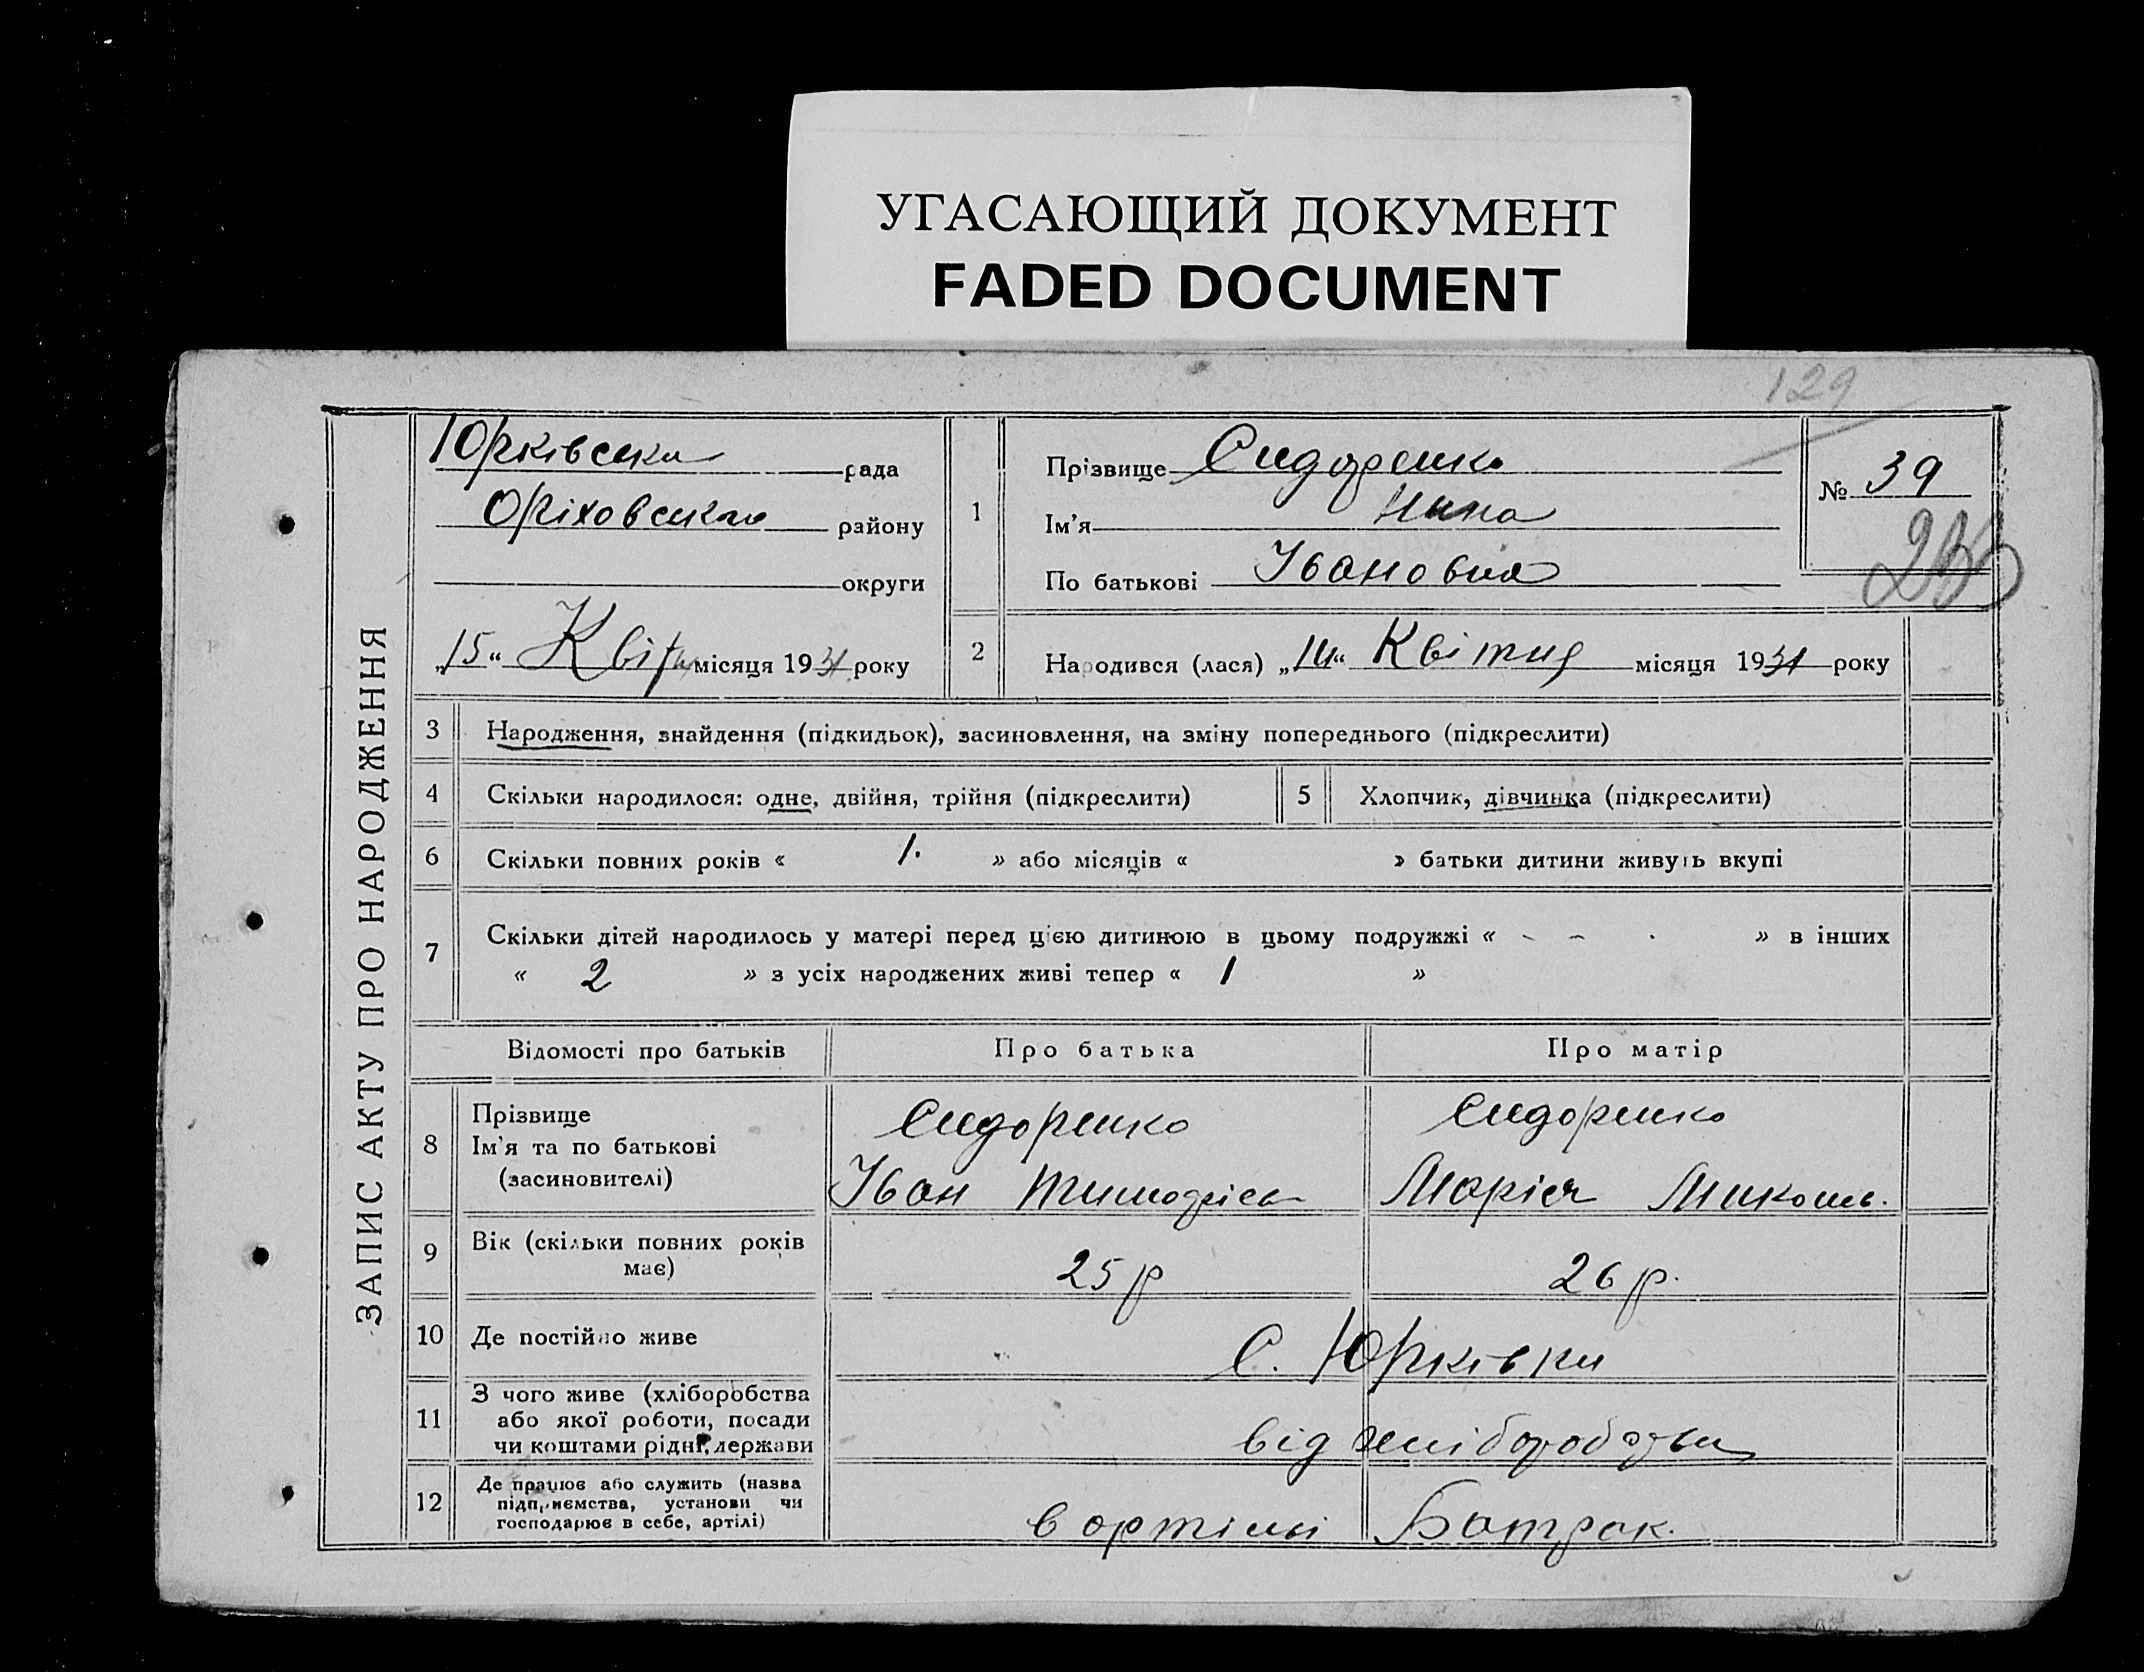 УГАСАЮЩИЙ ДОКУМЕНТ
FADED DOCUMENT
129
ЗАПИС АКТУ ПРО НАРОДЖЕННЯ
Юрківська рада
Оріховського району
округи
„15“ Квітн місяця 1931 року
1
Прізвище Сидоренко
Ім'я Нина
По батькові Івановна
№ 39
2
Народився (лася) „14“ Квітня місяця 1931 року
3 Народження, знайдення (підкидьок), засиновлення, на зміну попереднього (підкреслити)
4 Скільки народилося: одне, двійня, трійня (підкреслити)
5 Хлопчик, дівчинка (підкреслити)
6 Скільки повних років « 1. » або місяців « » батьки дитини живуть вкупі
7 Скільки дітей народилось у матері перед цією дитиною в цьому подружжі « - - . » в інших
« 2 » з усіх народжених живі тепер « 1 »
Відомості про батьків Про батька Про матір
8 Прізвище
Ім'я та по батькові
(засиновителі)
Сидоренко
Іван
Сидоренко
Марія Миколь.
9 Вік (скільки повних років
має)
25 р
26 р.
10 Де постійно живе
С. Юрківки
11 З чого живе (хліборобства
або якої роботи, посади
чи коштами рідні, держави
від хліборобства
12 Де працює або служить (назва
підприємства, установи чи
господарює в себе, артілі)
в артілі Батрак.